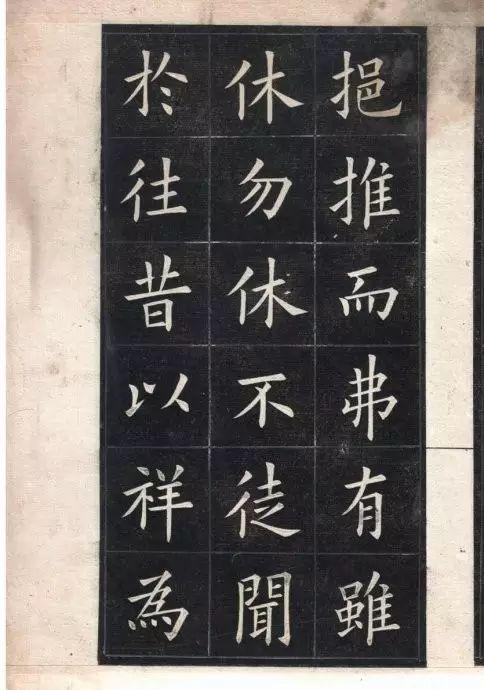 挹推而弗有雖
休勿休不徒聞
於往昔以祥為